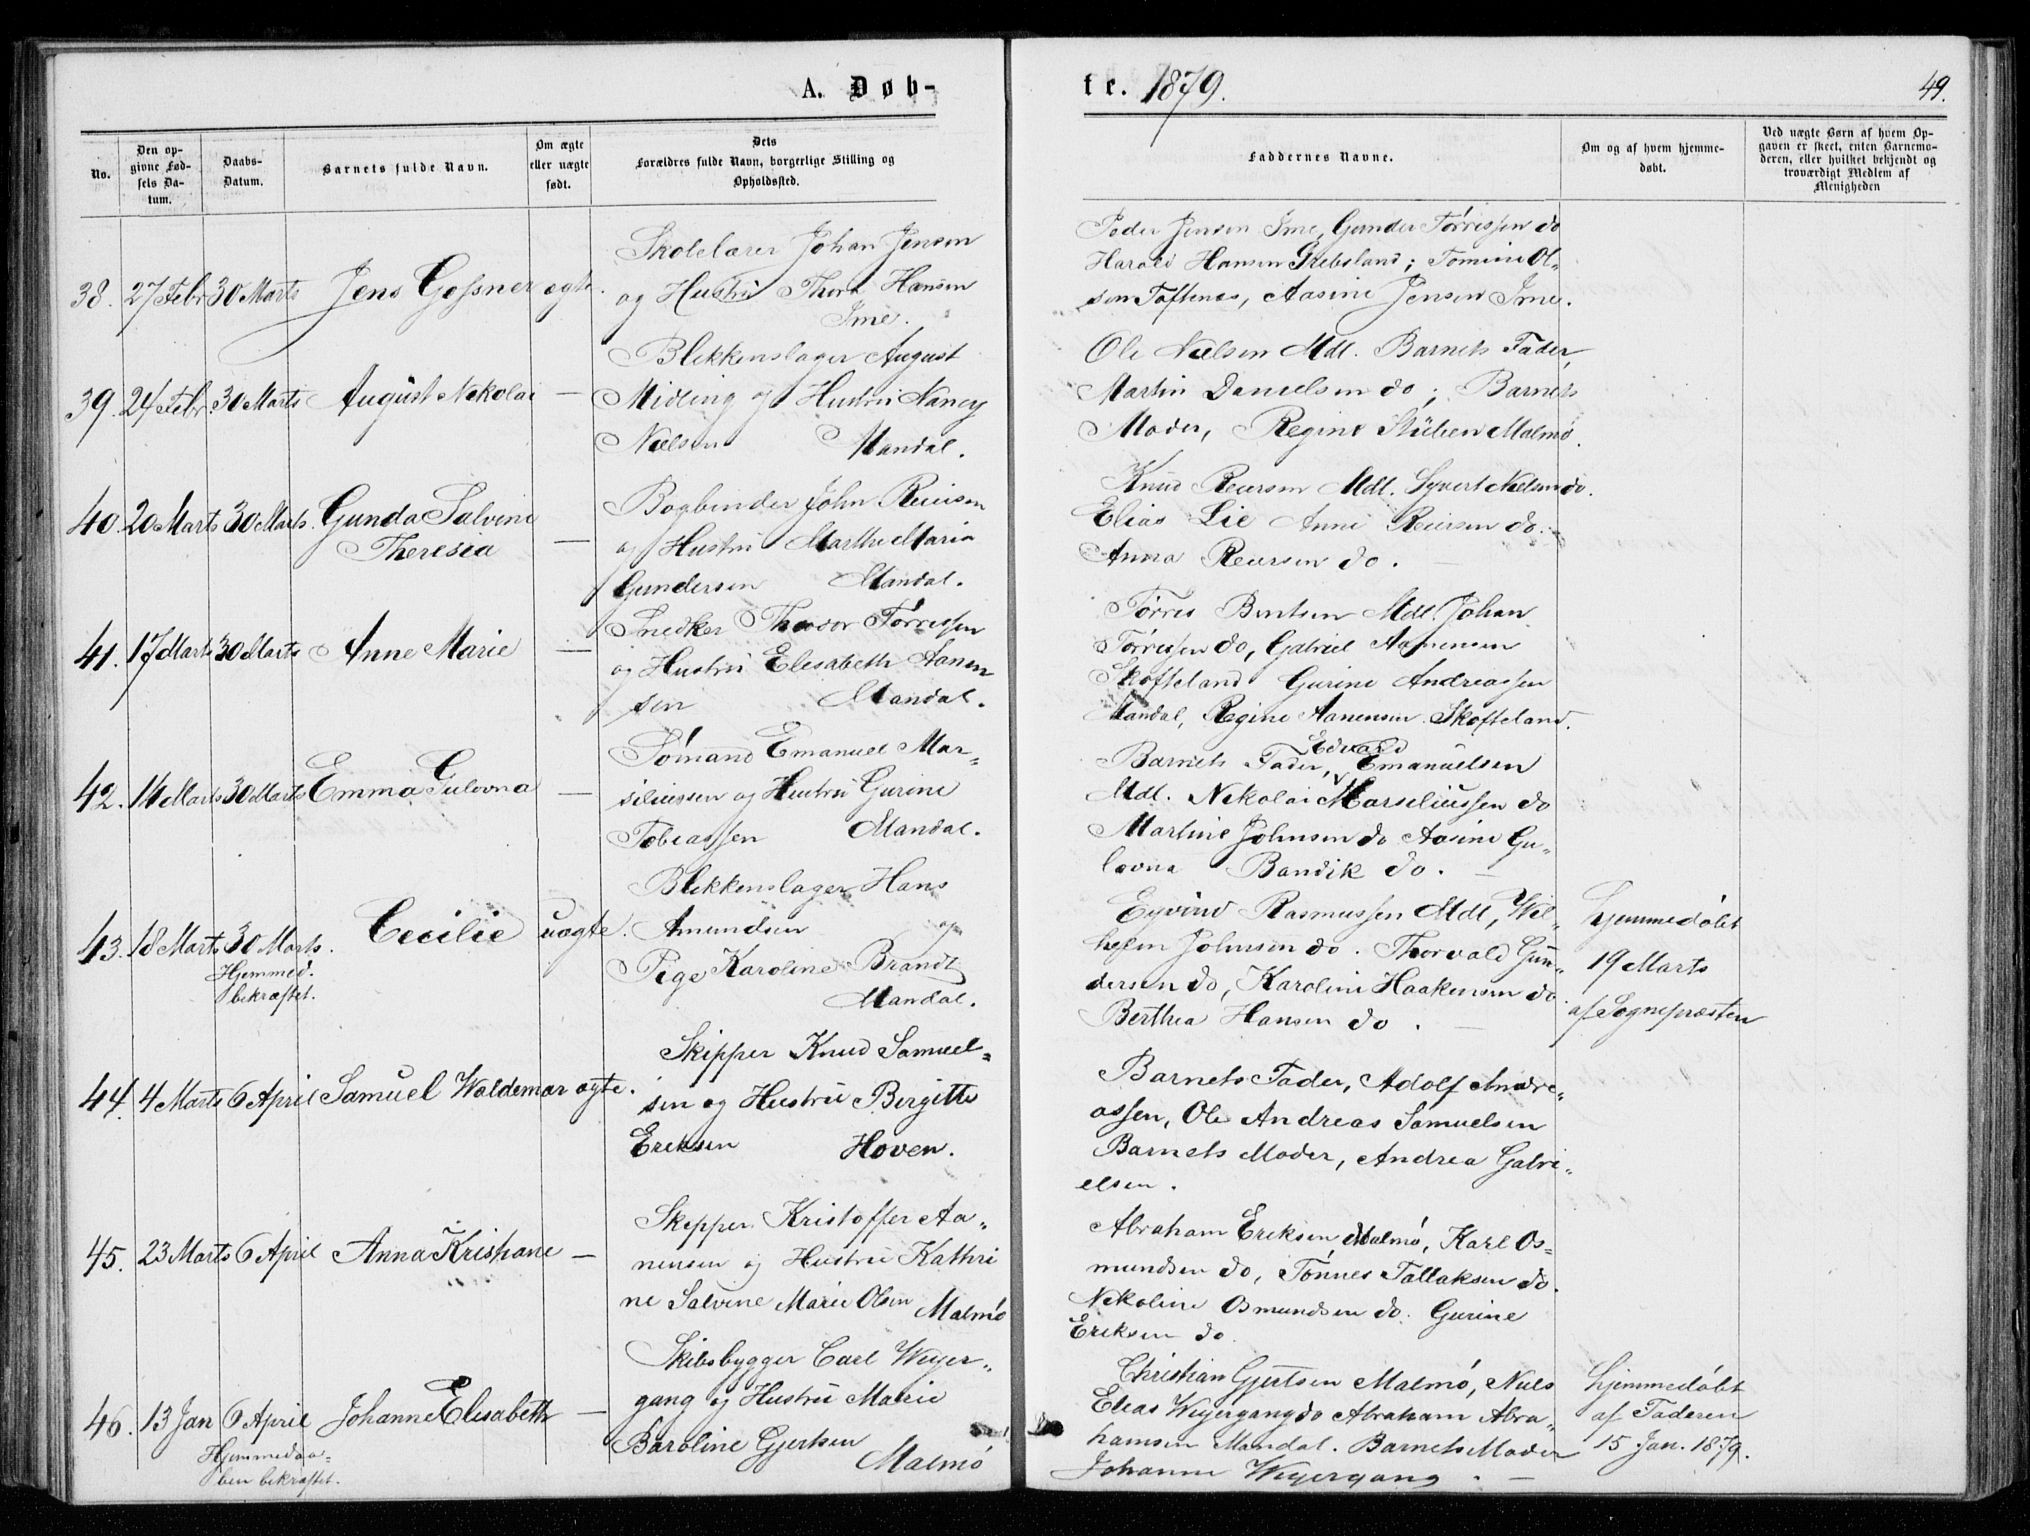 A. Døb-
te. 1879.
49.
No.
Den op-
givne Fød-
sels Da-
tum.
Daabs-
Datum.
Barnets fulde Navn.
Om ægte
eller uægte
født.
Dets
Forældres fulde Navn, borgerlige Stilling og
Opholdssted.
Faddernes Navne.
Om og af hvem hjemme-
døbt.
Ved uægte Børn af hvem Op-
gaven er skeet, enten Barnemo-
deren, eller hvilket bekjendt og
troværdigt Medlem af
Menigheden
38. 27 Febr 30 Marts Jens Gessner ægte.
Skolelærer Johan Jensen
og Hustru Thora Hansen
Ime.
Peder Jensen Ime, Gunder Tørressen do
Harald Hansen Grebsland; Tomine Ol-
sen Toftenes, Aasine Jensen Ime.
39. 24 Febr. 30 Marts August Nekolai —
Blekkenslager August
Midling og Hustru Nancy
Nielsen Mandal.
Ole Nielsen Mdl. Barnets Fader,
Martin Danielsen do; Barnets
Moder, Regine Stüben Malmø.
40. 20 Marts 30 Marts. Gunda Salvine
Theresia —
Bogbinder John Reiersen
og Hustru Marthe Maria
Gundersen Mandal.
Knud Reiersen Mdl. Syvert Nielsen do.
Elias Lie Anne Reiersen do.
Anna Reiersen do.
41. 17 Marts 30 Marts Anne Marie —
Snedker Thorvor Tørressen
og Hustru Elisabeth Aanen
sen Mandal.
Tørres Bentsen Mdl. Johan
Tørressen do, Gabriel Aanensen
Skofteland Gurine Andreassen
Mandal, Regine Aanensen Skofteland.
42. 14 Marts 30 Marts Emma Gulovna —
Sømand Emanuel Mar-
siliussen og Hustru Gurine
Tobiassen Mandal.
Edvard
Barnets Fader, Emanuelsen
Mdl. Nekolai Marseliussen do
Martine Johnsen do Aasine Gu-
lovna Bandik do. —
43. 18 Marts 30 Marts. Cecilie uægte.
Hjemmed.
bekræftet.
Blekkenslager Hans
Amundsen og
Pige Karoline Brandt
Mandal.
Eyvind Rasmussen Mdl, Wil-
helm Johnsen do. Thorvald Gun-
dersen do, Karoline Haakensen do
Berthea Hansen do. —
Hjemmedøbt
19 Marts
af Sognepræsten
44. 4 Marts 6 April Samuel Waldemar ægte.
Skipper Knud Samuel-
sen og Hustru Bergitte
Eriksen Hoven.
Barnets Fader, Adolf Andre-
assen, Ole Andreas Samuelsen
Barnets Moder, Andrea Gabri-
elsen.
45. 23 Marts 6 April Anna Kristiane —
Skipper Kristoffer Aa-
nensen og Hustru Kathri
ne Salvine Marie Olsen Malmø
Abraham Eriksen, Malmø, Karl Os-
mundsen do, Tønnes Tallaksen do.
Nekoline Osmundsen do. Gurine
Eriksen do.
46. 13 Jan 6 April Johanne Elisabeth —
Hjemmedaa-
ben bekræftet.
Skibsbygger Carl Weyer-
gang og Hustru Marie
Baroline Gjertsen
Malmø
Christian Gjertsen Malmø, Niels
Elias Weyergang do Abraham Abra-
hamsen Mandal. Barnets Moder
Johanne Weyergang. —
Hjemmedøbt
af Faderen
15 Jan. 1879.